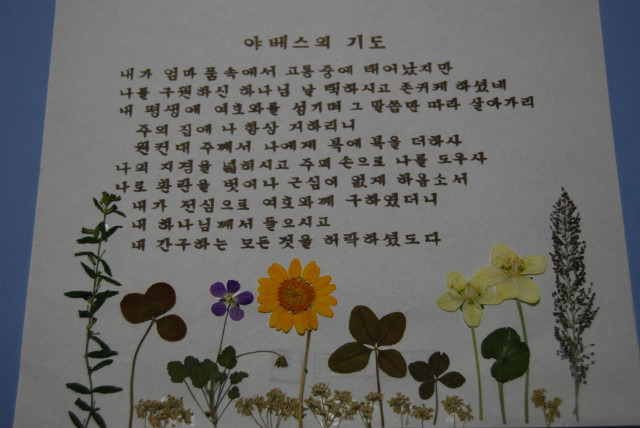 야베스의 기도
내가 엄마 품속에서 고통중에 태어났지만
나를 구원하신 하나님 날 택하시고 존귀케 하셨네
내 평생에 여호와를 섬기며 그 말씀만 따라 살아가리
주의 집에 나 항상 거하리니
원컨대 주께서 나에게 복에 복을 더하사
나의 지경을 넓혀시고 주의 손으로 나를 도우사
나로 환란을 벗어나 근심이 없게 하옵소서
내가 전심으로 여호와께 구하였더니
내 하나님께서 들으시고
내 간구하는 모든것을 허락하셨도다